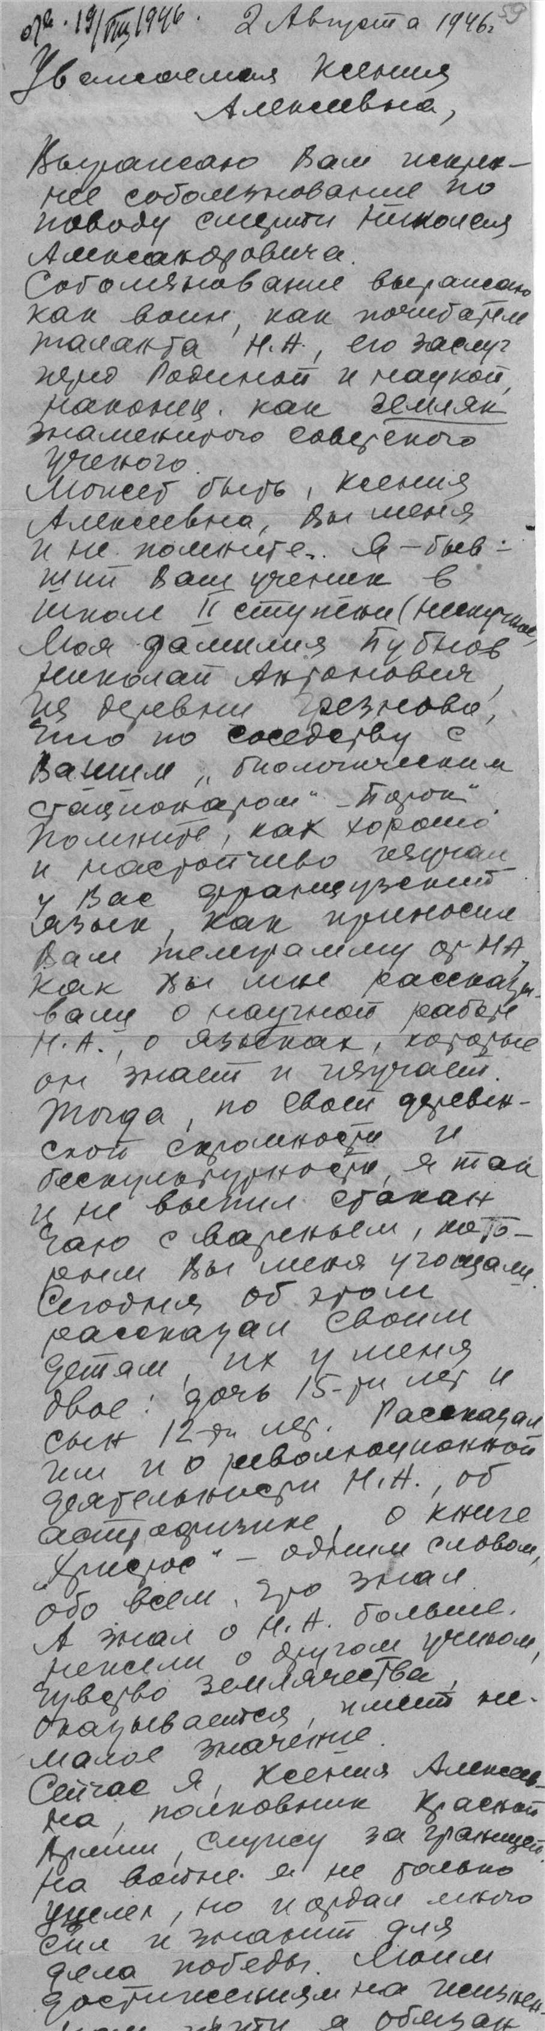 отв. 19/VIII 1946. 2 Августа 1946г. 59
Уважаемая Ксения
Алексеевна,
Выражаю Вам искрен-
нее соболезнование по
поводу смерти Николая
Александровича.
Соболезнование выражаю
как воин, как почитатель
таланта Н.А., его заслуг
перед Родиной и наукой,
наконец. как земляк
знаменитого советского
ученого.
Может быть, Ксения
Алексеевна, Вы меня
и не помните. Я – быв-
ший Ваш ученик в
школе II ступени (
Моя фамилия Бубнов
Николай Антонович,
из деревни Грезново,
что по соседству с
Вашим „биологическим
стационаром" – "Борок"
Помните, как хорошо
и настойчиво изучал
у Вас французский
язык, как приносил
Вам телеграмму от Н.А,
как Вы мне рассказы-
вали о научной работе
Н.А., о языках, которые
он знает и изучает.
Тогда, по своей деревен-
ской скромности и
бескультурности, я так
и не выпил стакан
чаю с вареньем, кото-
рым Вы меня угощали.
Сегодня об этом
рассказал своим
детям, их у меня
двое: дочь 15-ти лет и
сын 12-ти лет. Рассказал
им и о революционной
деятельности Н.А., об
астрофизике, о книге
„Христос" – одним словом,
обо всем, что знал.
А знал о Н.А. больше.
нежели о другом ученом,
чувство землячества,
оказывается, имеет не-
малое значение.
Сейчас я, Ксения Алексеев-
на, полковник Красной
Армии, служу за границей.
На войне я не только
уцелел, но и отдал много
сил и знаний для
дела победы. Моим
достижениям на жизнен-
ном пути я обязан